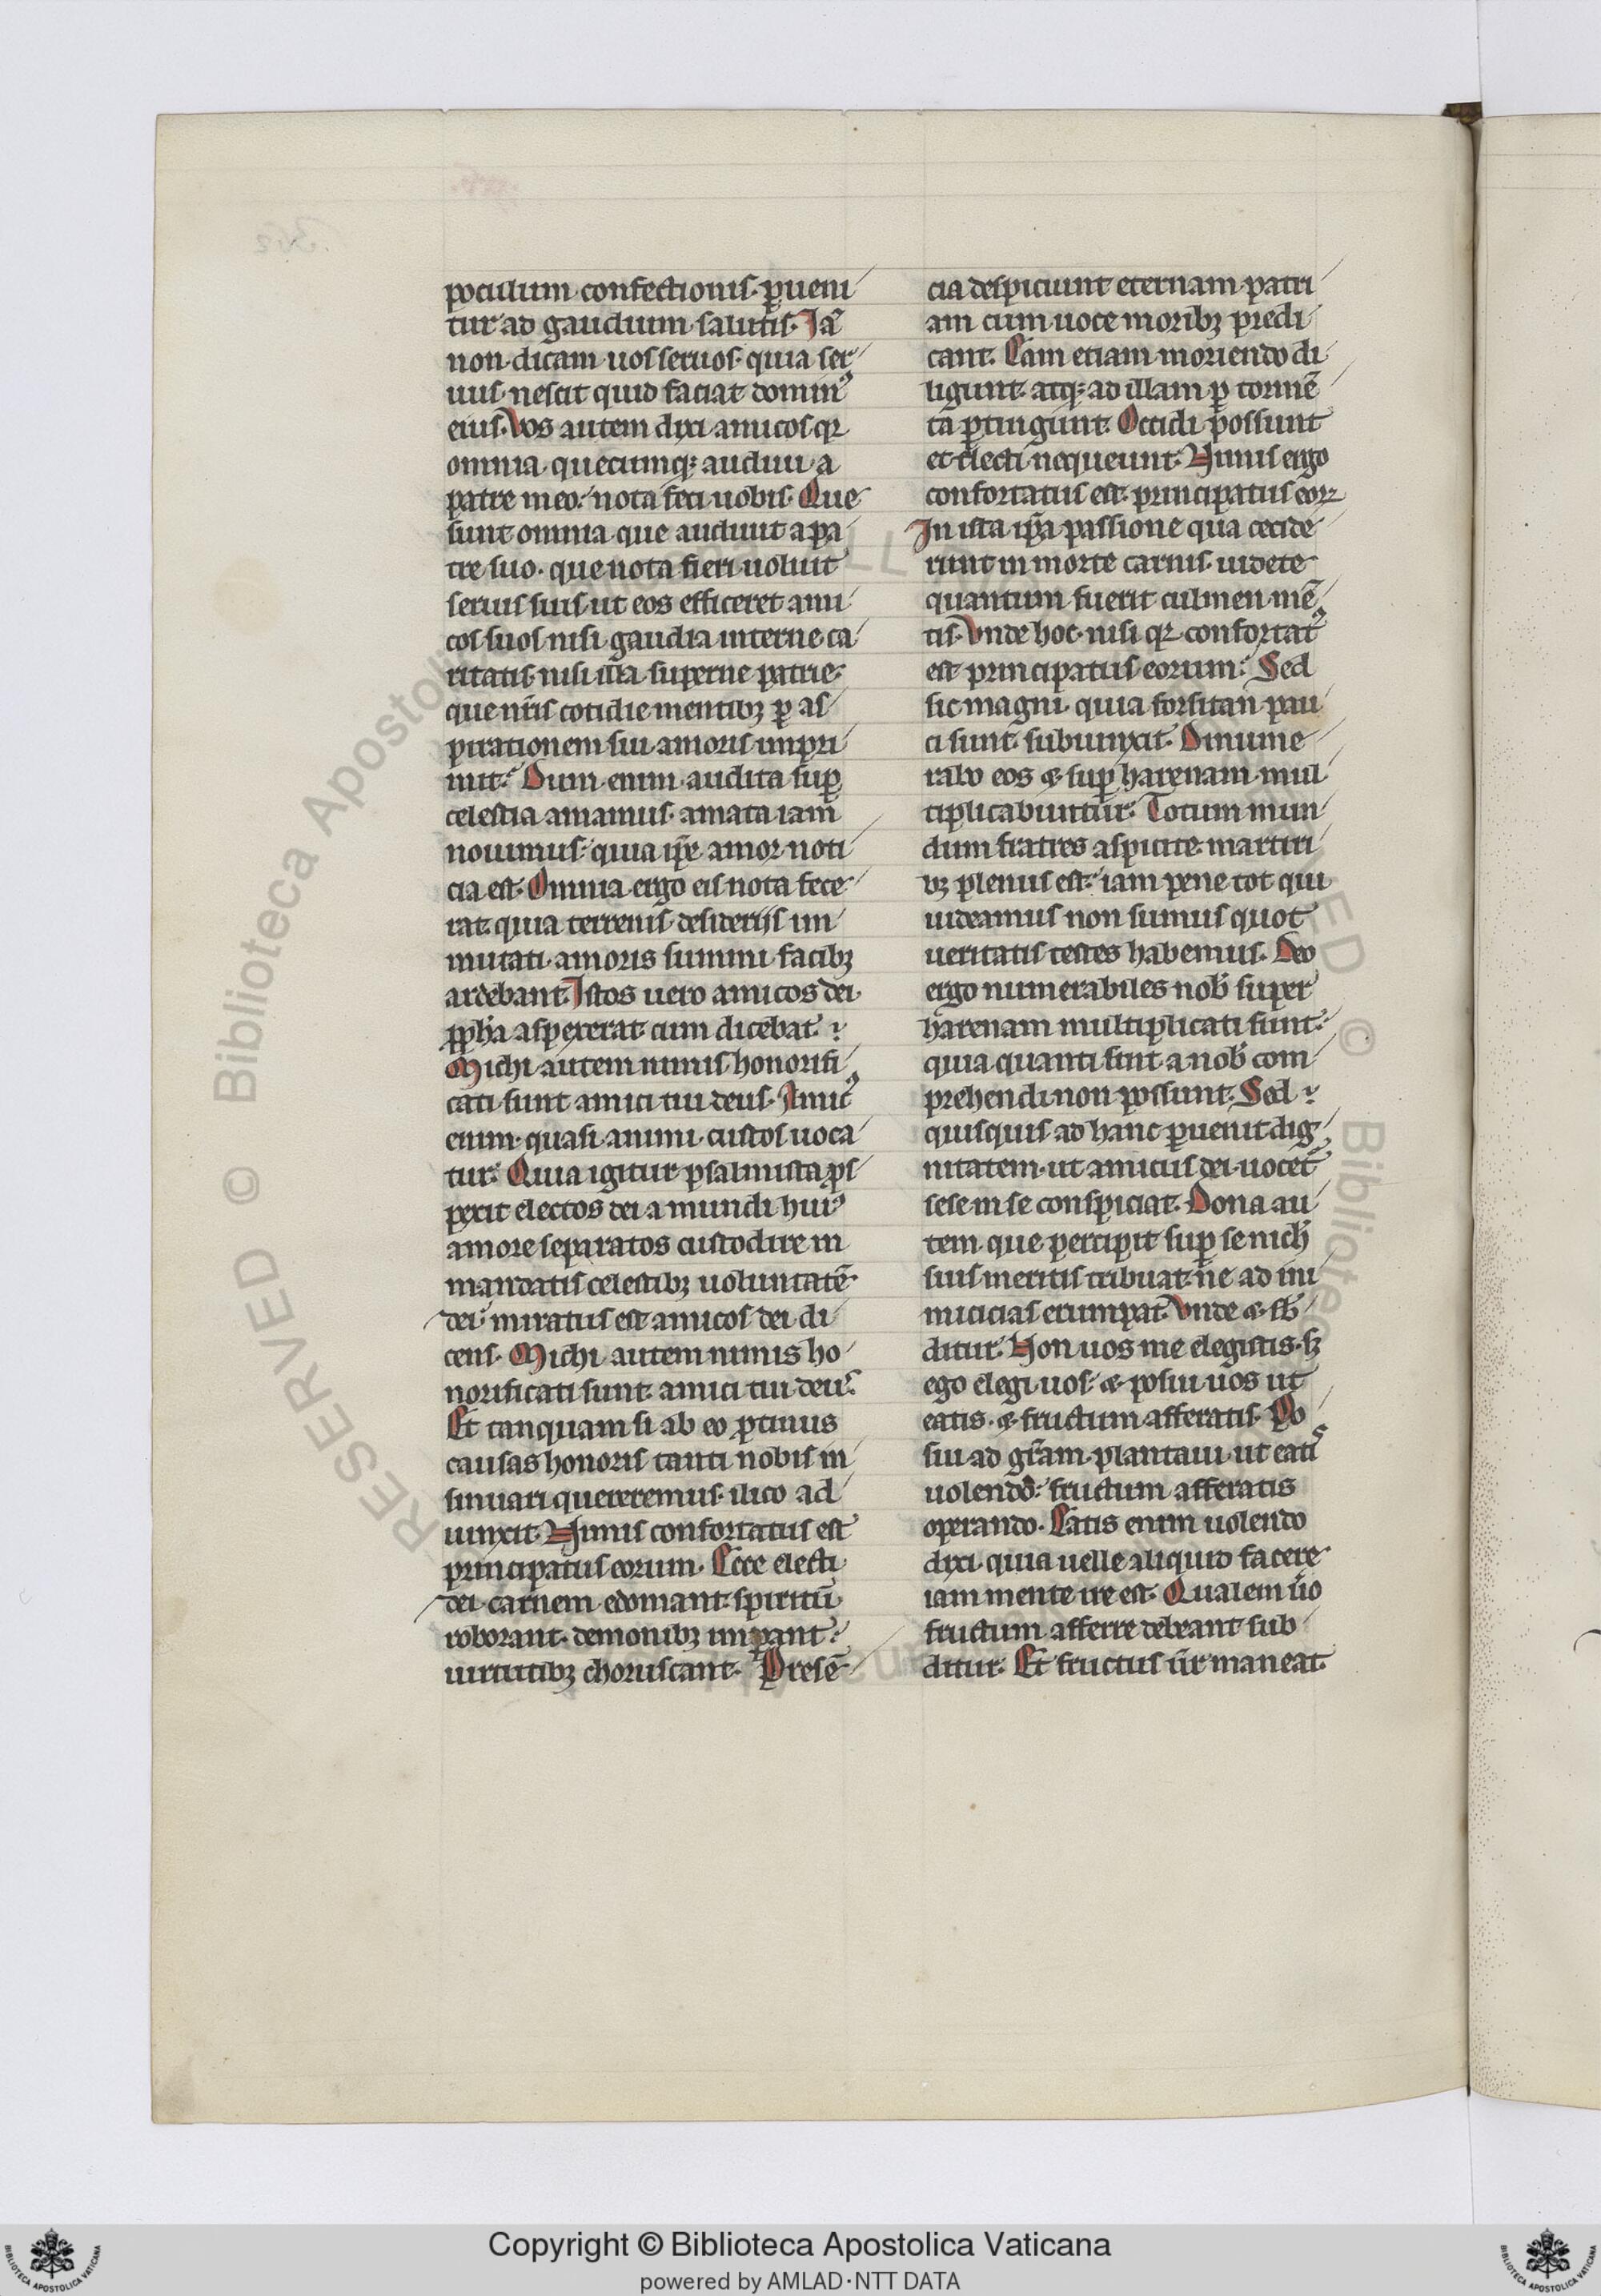 poculum confectionis. ꝑueni
tur ad gaudium salutis. Iã
non dicam uos seruos. quia ser
uus nescit quid faciat domin᷒
eius. Vos autem dixi amicos qꝛ
omnia quecumqꝫ audiui a
patre meo: nota feci uobis. Que
sunt omnia que audiuit a pa
tre suo. que nota fieri uoluit
seruis suis ut eos efficeret ami
cos suos nisi gaudia interne ca
ritatis nisi illa superne patrie.
que nr̃is cotidie mentibꝫ ꝑ as
pirationem sui amoris impri
mit. Dum enim audita suꝑ
celestia amamus. amata iam
nouimus. quia ip̃e amor noti
cia est. Omnia ergo eis nota fece
rat. quia terrenis desiderijs im
mutati. amoris summi facibꝫ
ardebant. Istos uero amicos dei
ꝓph̃a aspexerat cum dicebat.
Michi autem nimis honorifi
cati sunt amici tui deus. Amic᷒
enim. quasi animi custos uoca
tur. Quia igitur psalmista ꝓs
pexit electos dei a mundi hui᷒
amore separatos custodire in
mandatis celestibꝫ uoluntatẽ
dei. miratus est amicos dei di
cens. Michi autem nimis ho
norificati sunt amici tui deus.
Et tanquam si ab eo ꝓtinus
causas honoris tanti nobis in
sinuari quereremus. ilico ad
iunxit. Nimis confortatus est
principatus eorum. Ecce electi
dei carnem edomant. spiritũ
roborant. demonibꝫ imꝑant.
uirtutibꝫ choruscant. Presẽ
cia despiciunt eternam patri
am cum uoce moribꝫ predi
cant. Eam etiam moriendo di
ligunt. atqꝫ ad illam ꝑ tormẽ
ta ꝑtingunt. Occidi possunt
et flecti nequeunt. Nimis ergo
confortatus est principatus eoꝝ
In ista ip̃a passione qua cecide
runt in morte carnis. uidete
quantum fuerit culmen mẽ
tis. Vnde hoc. nisi qꝛ confortat᷒
est principatus eorum. Sed
sic magni. quia forsitan pau
ci sunt. subiunxit. Dinume
rabo eos ⁊ suꝑ harenam mul
tiplicabuntur. Totum mun
dum fratres aspicite. martiri
bꝫ plenus est. iam pene tot qui
uideamus non sumus quot
ueritatis testes habemus. Deo
ergo numerabiles nob̃ super
harenam multiplicati sunt.
quia quanti sint a nob̃ com
prehendi non possunt. Sed
quisquis ad hanc ꝑuenit dig
nitatem. ut amicus dei uocet᷑
sese in se conspiciat. Dona au
tem que percipit suꝑ se nich̃
suis meritis tribuat. ne ad ini
micicias erumpat. Vnde ⁊ sb̃
ditur. Non uos me elegistis. sꝫ
ego elegi uos. ⁊ posui uos ut
eatis. ⁊ fructum afferatis. Po
sui ad gr̃am. plantaui ut eatis
uolendo. fructum afferatis
operando. Eatis enim uolendo
dixi. quia uelle aliquid facere
iam mente ire est. Qualem ũo
fructum afferre debeant sub
ditur. Et fructus ũr maneat.
RESERVED © Biblioteca Apostolica
Copyright © Biblioteca Apostolica Vaticana
powered by AMLAD·NTT DATA